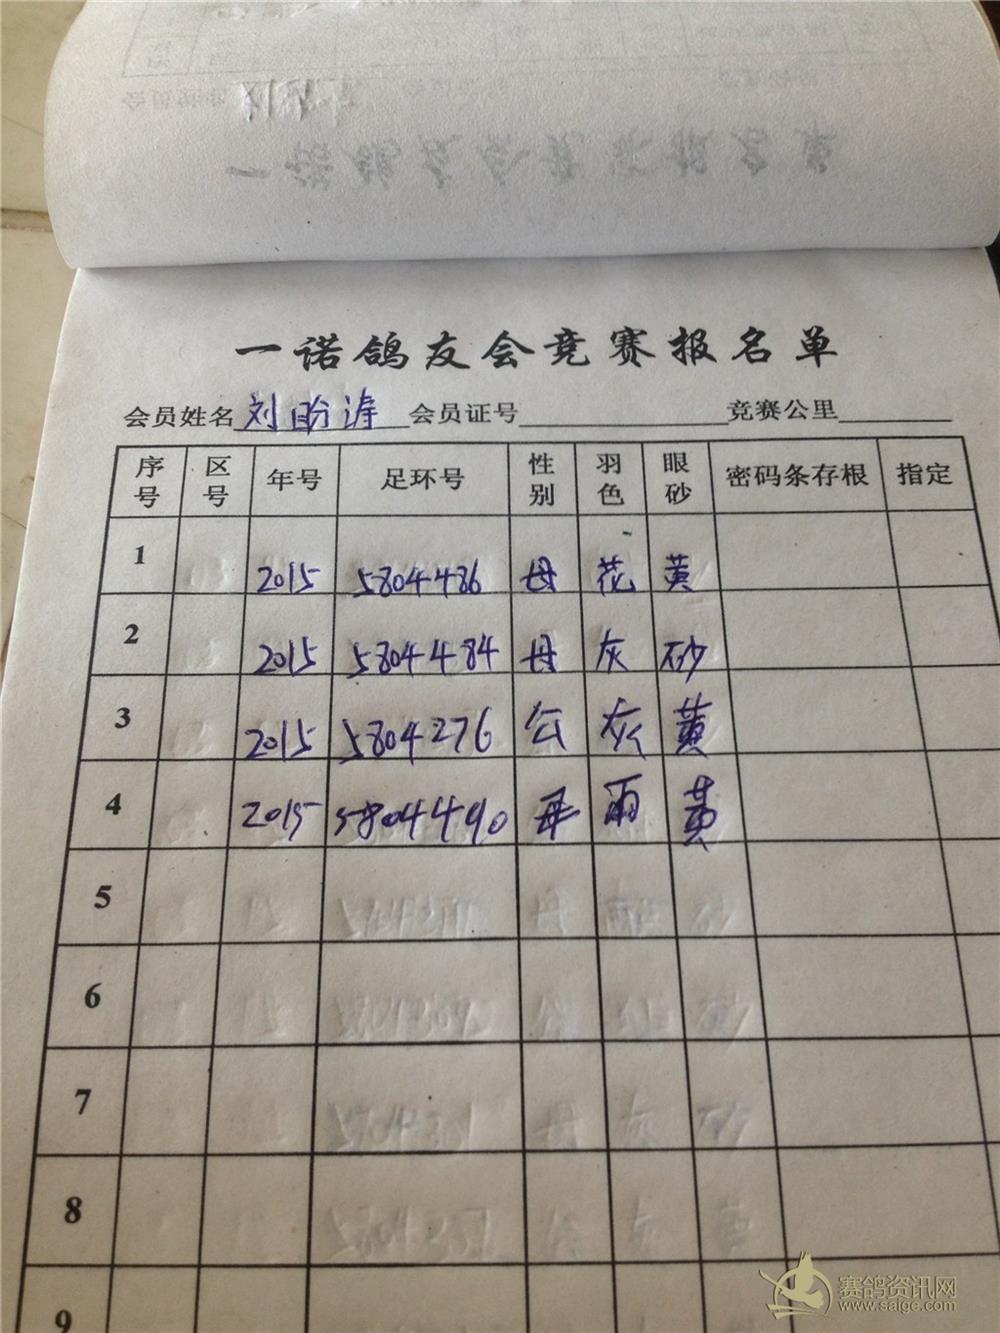 一诺鸽友会竞赛报名单
会员姓名 刘盼涛 会员证号 竞赛公里
序号 区号 年号 足环号 性别 羽色 眼砂 密码条存根 指定
1 2015 5804486 母 花 黄
2 2015 5804484 母 灰 砂
3 2015 5804276 公 灰 黄
4 2015 5804490 母 雨 黄
5
6
7
8
9
赛鸽资讯网
www.saige.com